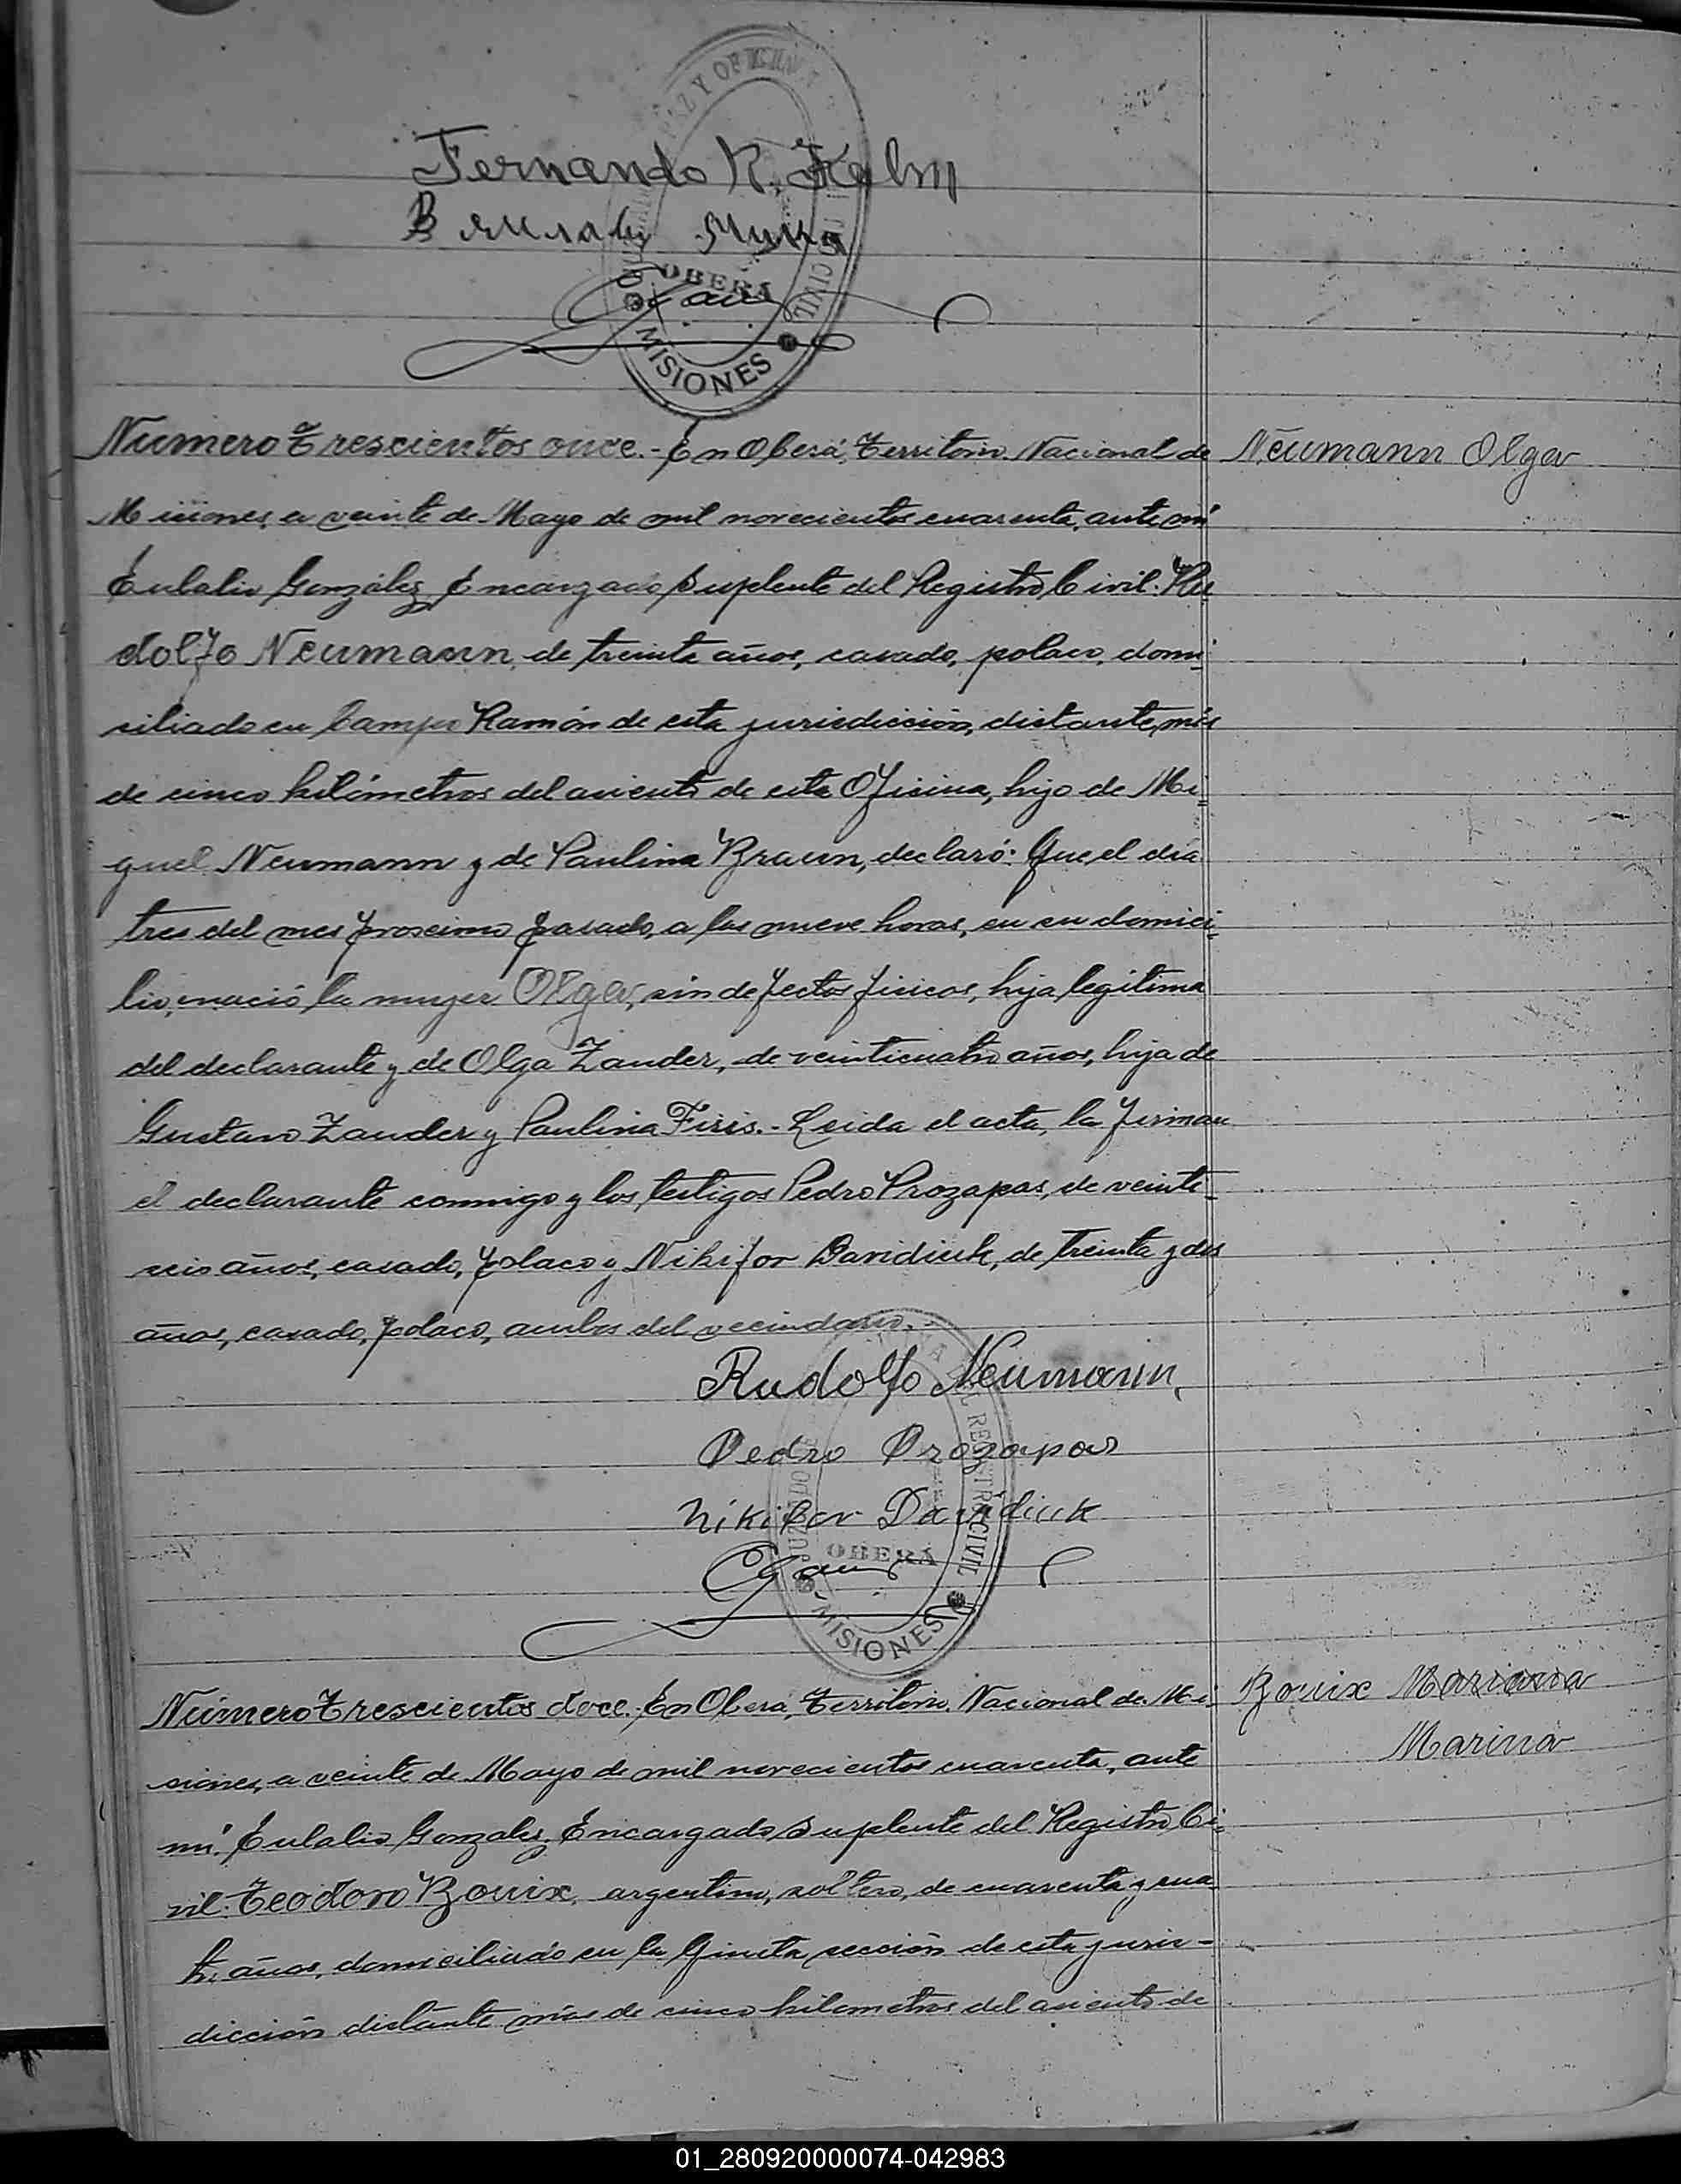 Fernando R. Kelm
OBERÁ
MISIONES
CIVIL
Número Trescientos once.- En Oberá, Territorio Nacional de
Neumann Olga
Misiones, a veinte de Mayo de mil novecientos cuarenta, ante mí
Eulalio González, Encargado Suplente del Registro Civil: Ru-
dolfo Neumann, de treinta años, casado, polaco, domi-
ciliado en Campo Ramón de esta jurisdicción, distante más
de cinco kilómetros del asiento de esta Oficina, hijo de Mi-
guel Neumann y de Paulina Braun, declaró: Que, el día
tres del mes proscimo pasado, a las nueve horas, en su domici-
lio, nació la mujer Olga, sin defectos físicos, hija legítima
del declarante y de Olga Zander, de veinticuatro años, hija de
Gustavo Zander y Paulina Firis.- Leida el acta, la firman
el declarante conmigo y los testigos Pedro Prozapas, de veinti-
seis años, casado, polaco y Nikifor Davidiuk, de treinta y dos
años, casado, polaco, ambos del vecindario.-
Rudolfo Neumann,
Pedro Prozapas
Nikifor Davidiuk
REGISTRO CIVIL
OBERÁ
MISIONES
Número Trescientos doce.- En Oberá, Territorio Nacional de Mi-
Bouix Mariana
Marina
siones, a veinte de Mayo de mil novecientos cuarenta, ante
mí. Eulalio Gonzalez, Encargado Suplente del Registro Ci-
vil: Teodoro Bouix, argentino, soltero, de cuarenta y cua-
tro años, domiciliado en la Quinta sección de esta juris-
dicción distante más de cinco kilometros del asiento de
01_280920000074-042983